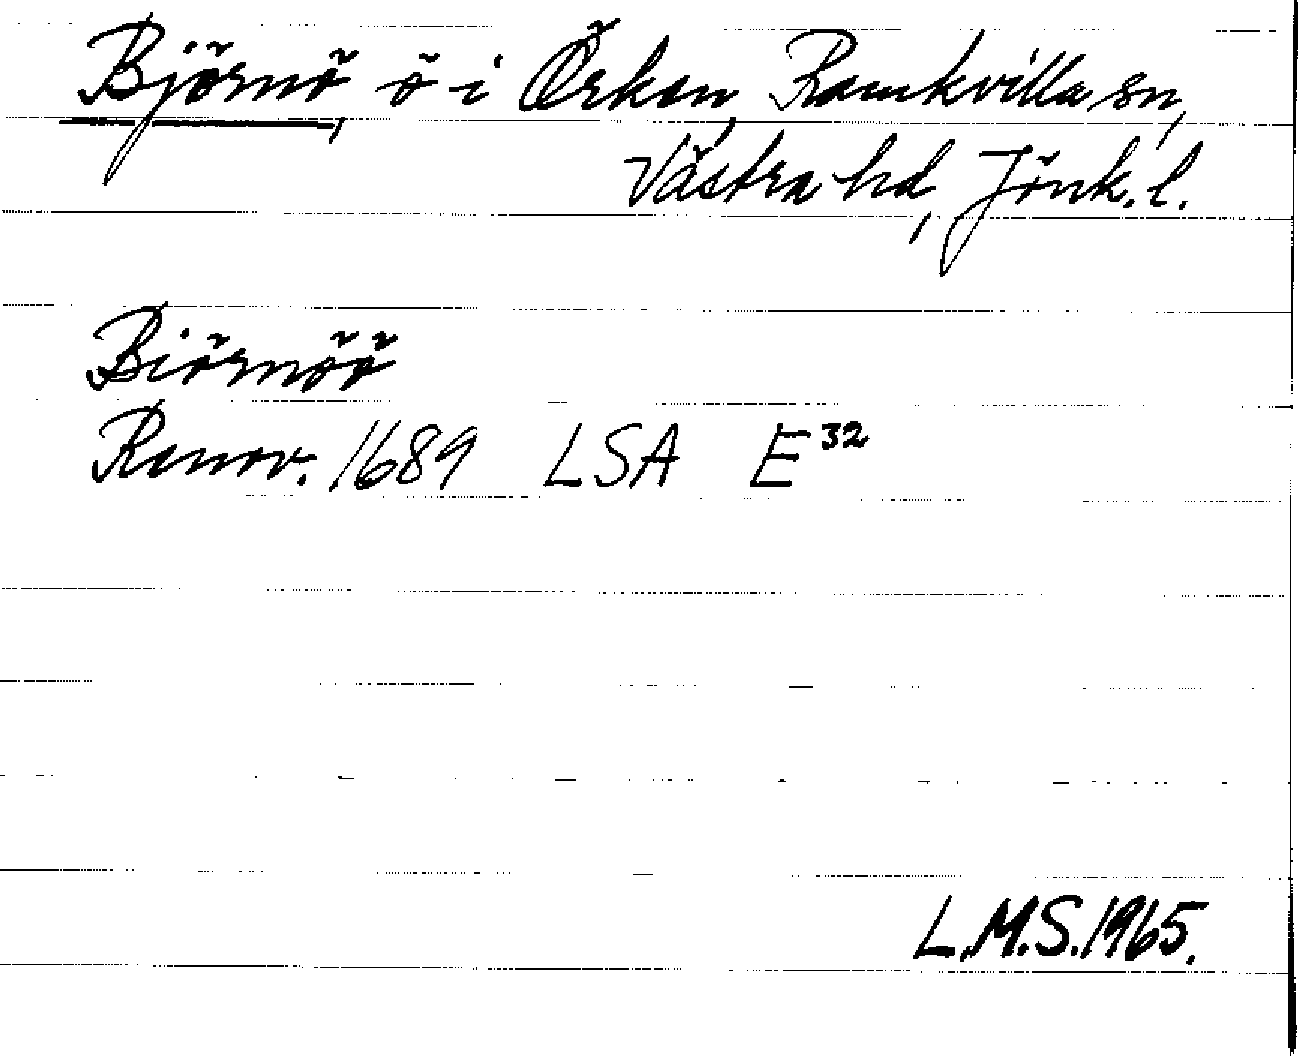 Björnö, ö i Örken, Ramkvilla sn,
Västra hd, Jönk. l.
Biörnöö
Renov. 1689 LSA E³²
L.M.S. 1965.